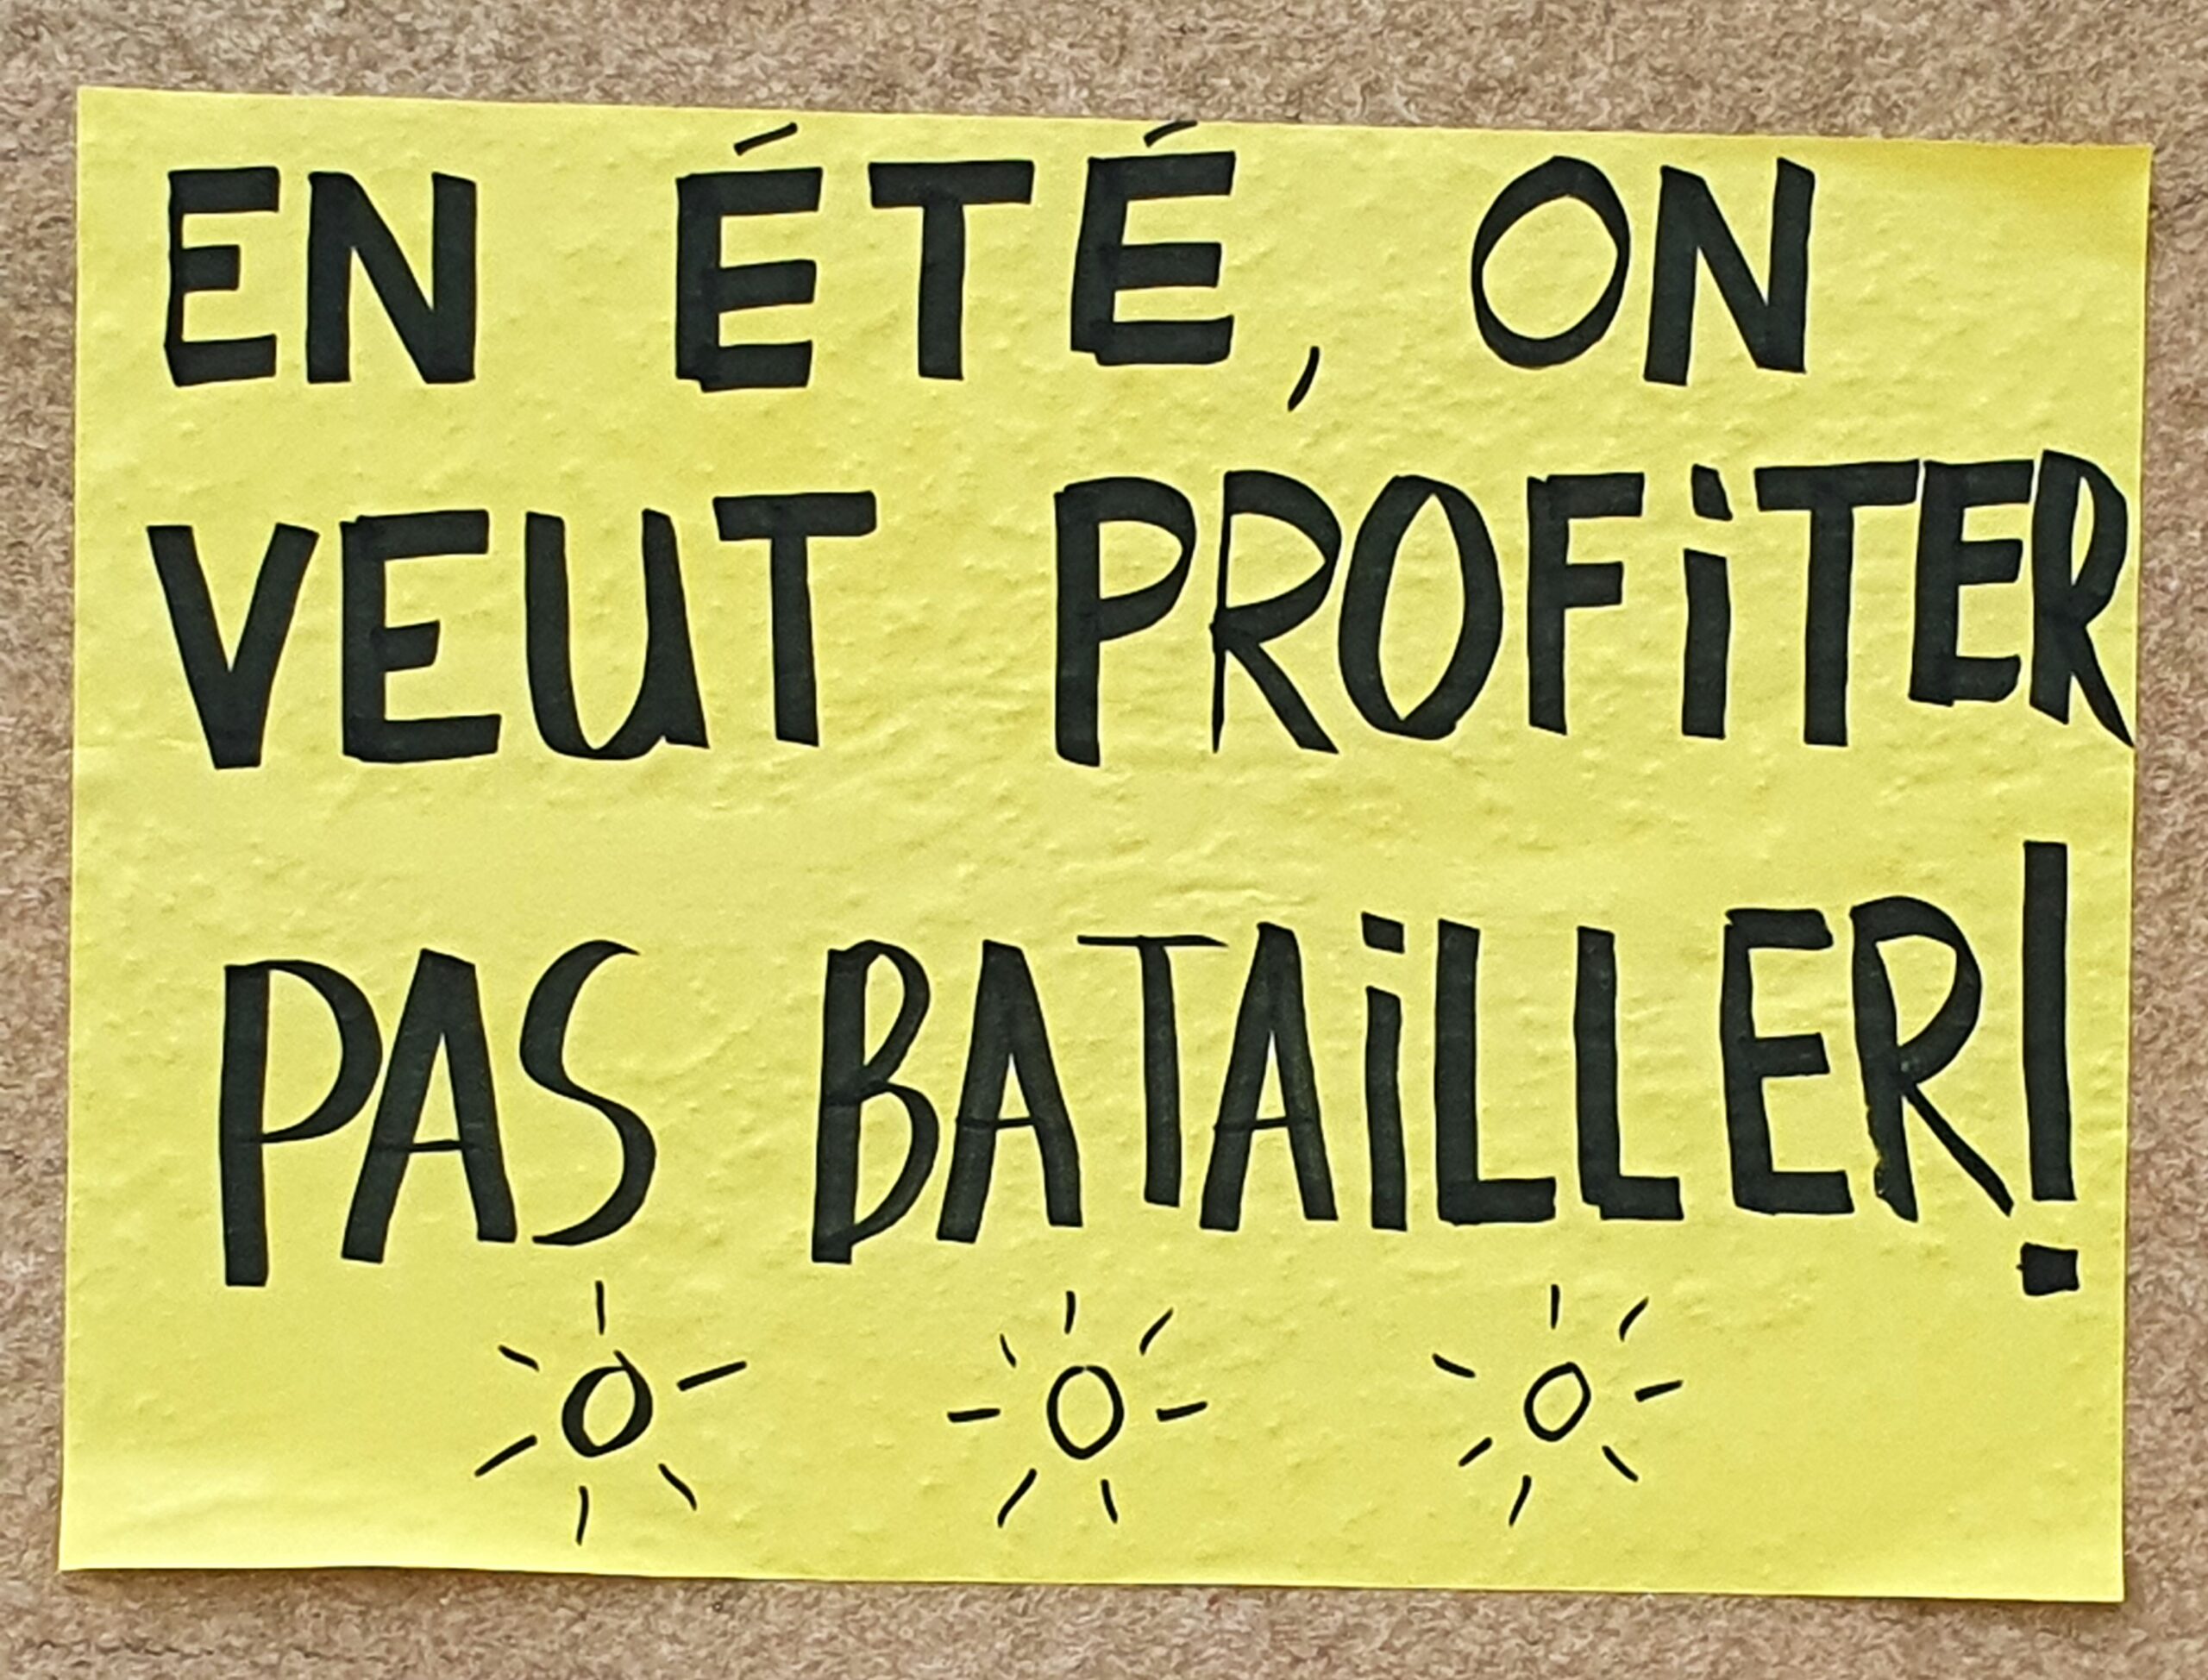 EN ÉTÉ, ON
VEUT PROFiTER
PAS BATAiLLER!